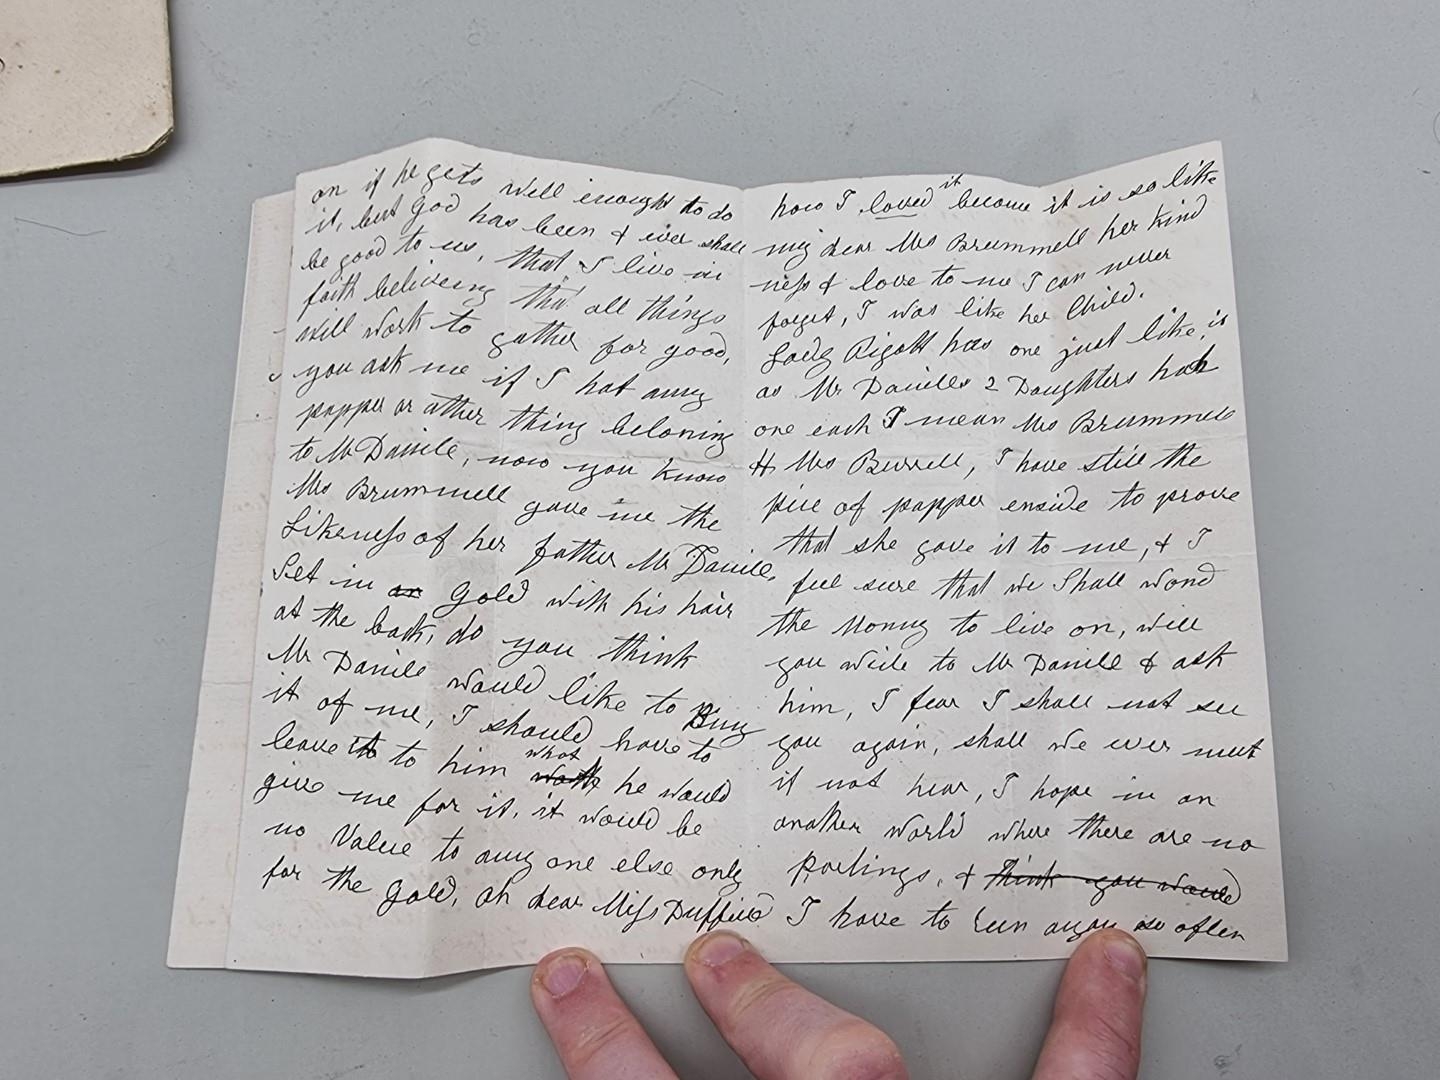 on if he gets well enought to do
it, but God has been & ever shall
be good to us, that I live in
faith believeing tha all things
will work to gather for good,
you ask me if I hat anny
papper or other thing beloning
to Mr Danile, now you know
Mrs Brummell gave me the
Likeness of her father Mr Danile,
Set in an Gold with his hair
at the back, do you think
Mr Danile would like to Buy
it of me, I should have to
leave it to him what he would
give me for it, it would be
no Value to anny one else only
for the gold, oh dear Miss Duffield
how I loved it because it is so like
my dear Mrs Brummell her kind
ness & love to me I can never
forget, I was like her Child.
Lady Pigott has one just like it
as Mr Daniles 2 Daughters had
one each I mean Mrs Brummell
& Mrs Burrell, I have still the
pice of papper enside to prove
that she gave it to me, & I
feel sure that we Shall wond
the Monny to live on, will
you wile to Mr Danile & ask
him, I fear I shall not see
you again, shall we ever meet
if not hear, I hope in an
another world where there are no
Partings, & think you would
I have to run away so often